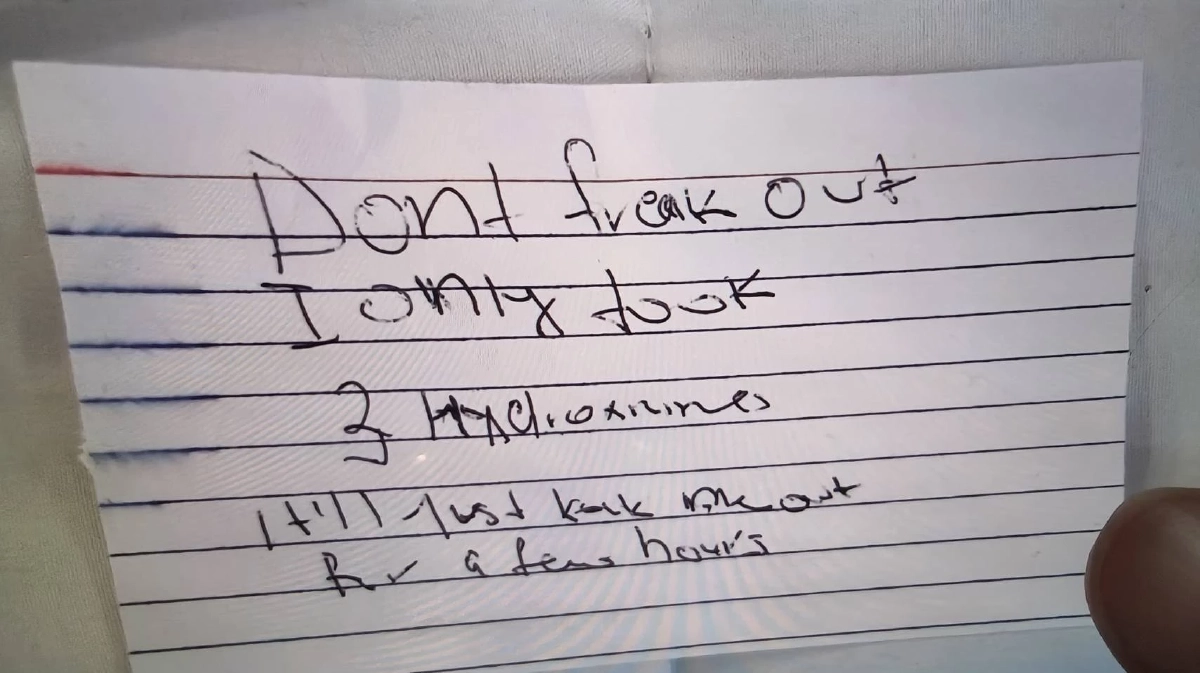 Dont freak out
I only took
3 Hydroxinines
It'll Just knock me out
for a few hours